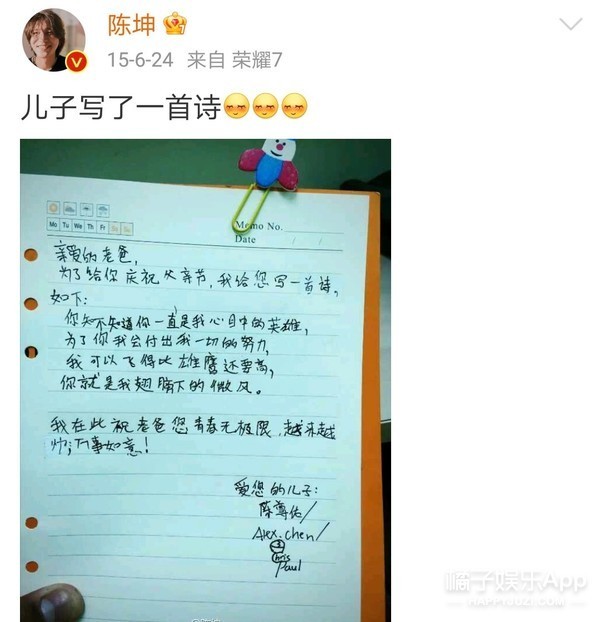 陈坤
15-6-24 来自 荣耀7
儿子写了一首诗
Memo No.
Mo Tu We Th Fr Sa Su
Date / /
亲爱的老爸,
为了给你庆祝父亲节,我给您写一首诗,
如下:
你知不知道你一直是我心目中的英雄,
为了你我会付出我一切的努力,
我可以飞得比雄鹰还要高,
你就是我翅膀下的微风。
我在此祝老爸您青春无极限,越来越
帅,万事如意!
爱您的儿子:
陈尊佑/
Alex.chen/
Chris
Paul
橘子娱乐App
HAPPYJUZI.COM